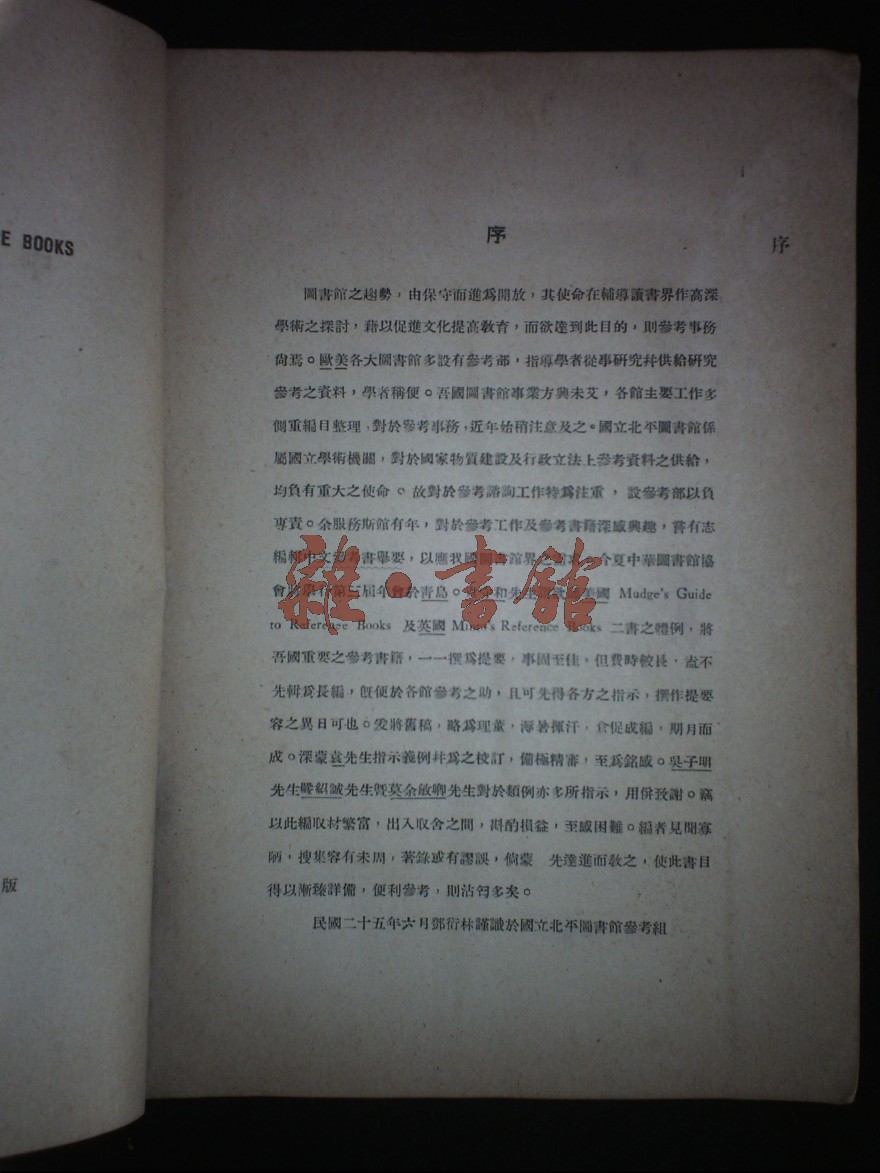 E BOOKS
版
序
序
圖書館之趨勢，由保守而進爲開放，其使命在輔導讀書界作高深
學術之探討，藉以促進文化提高教育，而欲達到此目的，則參考事務
尙焉。歐美各大圖書館多設有參考部，指導學者從事研究并供給研究
參考之資料，學者稱便。吾國圖書館事業方興未艾，各館主要工作多
側重編目整理，對於參考事務，近年始稍注意及之。國立北平圖書館係
屬國立學術機關，對於國家物質建設及行政立法上參考資料之供給，
均負有重大之使命。故對於參考諮詢工作特爲注重，設參考部以負
專責。余服務斯館有年，對於參考工作及參考書籍深感興趣，嘗有志
編輯中文參考書舉要，以應我國圖書館界之需求。今夏中華圖書館協
會將舉行第三屆年會於靑島。和先生美國 Mudge's Guide
to Reference Books 及英國 Minto's Reference Books 二書之體例，將
吾國重要之參考書籍，一一撰爲提要，事固至佳，但費時較長，盍不
先輯爲長編，旣便於各館參考之助，且可先得各方之指示，撰作提要
容之異日可也。爰將舊稿，略爲理董，溽暑揮汗，倉促成編，期月而
成。深蒙袁先生指示義例幷爲之校訂，備極精審，至爲銘感。吳子明
先生嚴紹誠先生曁莫余敏卿先生對於類例亦多所指示，用併致謝。竊
以此編取材繁富，出入取舍之間，斟酌損益，至感困難。編者見聞寡
陋，搜集容有未周，著錄或有謬誤，倘蒙　先達進而敎之，使此書目
得以漸臻詳備，便利參考，則沾匄多矣。
民國二十五年六月鄧衍林謹識於國立北平圖書館參考組
雜·書館